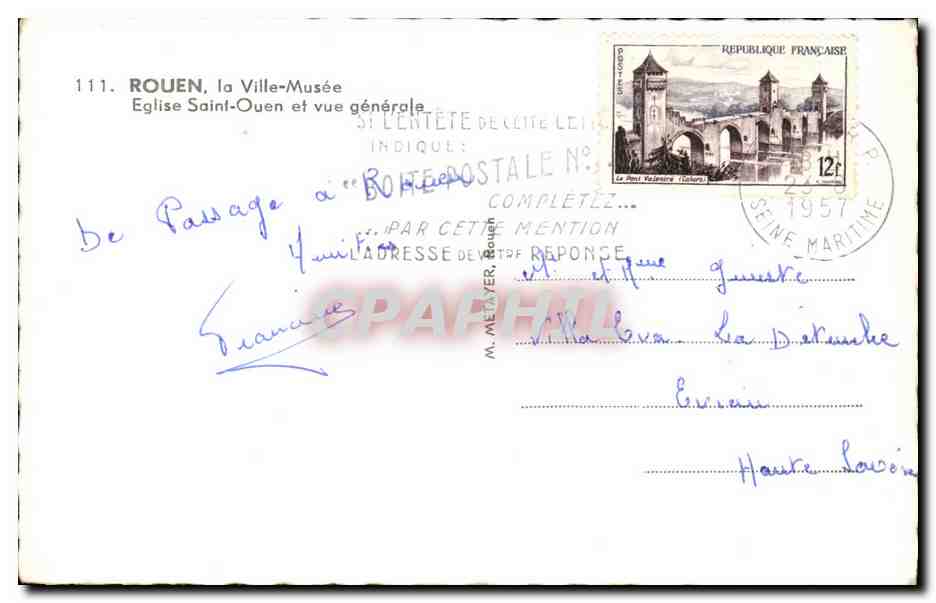 111. ROUEN, la Ville-Musée
Eglise Saint-Ouen et vue générale
POSTES
REPUBLIQUE FRANÇAISE
Le Pont Valentré (Cahors)
12f
SI L'ENTÊTE DE CETTE
INDIQUE:
"BOITE POSTALE N°
COMPLÉTEZ...
...PAR CETTE MENTION
L'ADRESSE DE VOTRE RÉPONSE
R.P.
1957
SEINE MARITIME
De Passage à Rouen
M. METAYER, Rouen
CPAPHIL
Mr et Mme
Villa Eva La Détanche
Evian
Haute Savoie